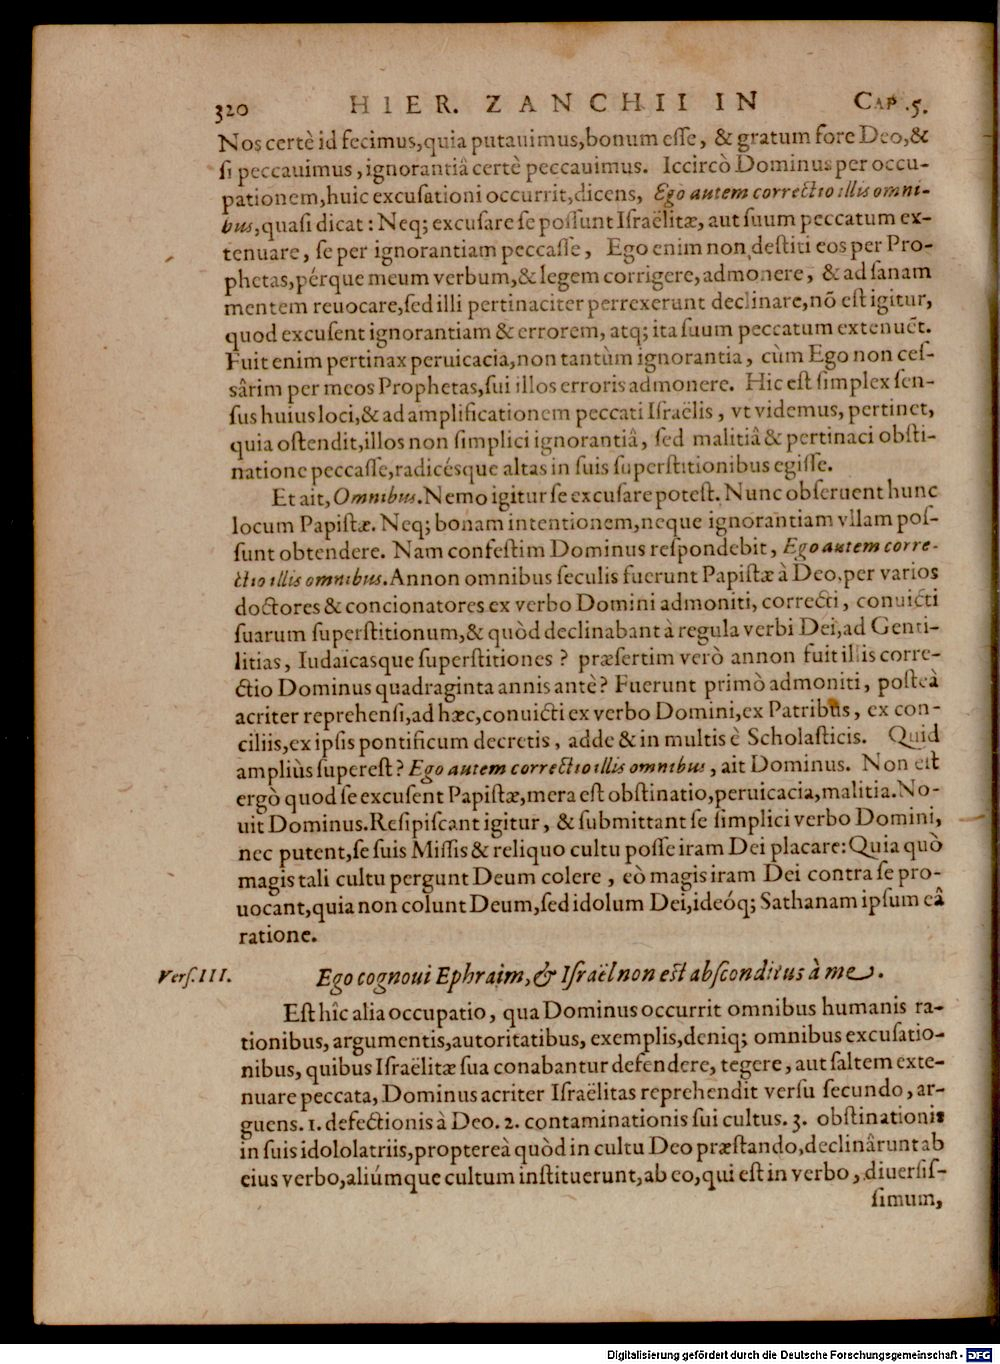 320 HIER. ZANCHII IN CAP .5.
Nos certè id fecimus,quia putauimus,bonum eſſe, & gratum fore Deo,&
ſi peccauimus, ignorantiâ certè peccauimus. Iccircò Dominus per occu-
pationem,huic excuſationi occurrit,dicens, Ego autem correctio illis omni-
bus,quaſi dicat: Neq; excuſare ſe poſſunt Iſraëlitæ, aut ſuum peccatum ex-
tenuare, ſe per ignorantiam peccaſſe, Ego enim non deſtiti eos per Pro-
phetas,pérque meum verbum,& legem corrigere,admonere, & ad ſanam
mentem reuocare,ſed illi pertinaciter perrexerunt declinare,nõ eſt igitur,
quod excuſent ignorantiam & errorem, atq; ita ſuum peccatum extenuẽt.
Fuit enim pertinax peruicacia,non tantùm ignorantia, cùm Ego non ceſ-
sârim per meos Prophetas,ſui illos erroris admonere. Hic eſt ſimplex ſen-
ſus huius loci,& ad amplificationem peccati Iſraëlis, vt videmus, pertinet,
quia oſtendit,illos non ſimplici ignorantiâ, ſed malitiâ & pertinaci obſti-
natione peccaſſe,radicésque altas in ſuis ſuperſtitionibus egiſſe.
Et ait, Omnibus. Nemo igitur ſe excuſare poteſt. Nunc obſeruent hunc
locum Papiſtæ. Neq; bonam intentionem,neque ignorantiam vllam poſ-
ſunt obtendere. Nam confeſtim Dominus reſpondebit, Ego autem corre-
ctio illis omnibus. Annon omnibus ſeculis fuerunt Papiſtæ à Deo,per varios
doctores & concionatores ex verbo Domini admoniti, correcti, conuicti
ſuarum ſuperſtitionum,& quòd declinabant à regula verbi Dei,ad Genti-
litias, Iudaicasque ſuperſtitiones? præſertim verò annon fuit illis corre-
ctio Dominus quadraginta annis antè? Fuerunt primò admoniti, poſteà
acriter reprehenſi,ad hæc,conuicti ex verbo Domini,ex Patribus, ex con-
ciliis,ex ipſis pontificum decretis, adde & in multis è Scholaſticis. Quid
ampliùs ſupereſt? Ego autem correctio illis omnibus, ait Dominus. Non eſt
ergò quod ſe excuſent Papiſtæ,mera eſt obſtinatio,peruicacia,malitia. No-
uit Dominus. Reſipiſcant igitur, & ſubmittant ſe ſimplici verbo Domini,
nec putent,ſe ſuis Miſſis & reliquo cultu poſſe iram Dei placare: Quia quò
magis tali cultu pergunt Deum colere, eò magis iram Dei contra ſe pro-
uocant,quia non colunt Deum,ſed idolum Dei,ideóq; Sathanam ipſum eâ
ratione.
Verſ. III. Ego cognoui Ephraim, & Iſraël non eſt abſconditus à me.
Eſt hîc alia occupatio, qua Dominus occurrit omnibus humanis ra-
tionibus, argumentis,autoritatibus, exemplis,deniq; omnibus excuſatio-
nibus, quibus Iſraëlitæ ſua conabantur defendere, tegere, aut ſaltem exte-
nuare peccata, Dominus acriter Iſraëlitas reprehendit verſu ſecundo, ar-
guens. 1. defectionis à Deo. 2. contaminationis ſui cultus. 3. obſtinationis
in ſuis idololatriis,proptereà quòd in cultu Deo præſtando,declinârunt ab
eius verbo,aliúmque cultum inſtituerunt,ab eo,qui eſt in verbo, diuerſiſ-
ſimum,
Digitalisierung gefördert durch die Deutsche Forschungsgemeinschaft - DFG